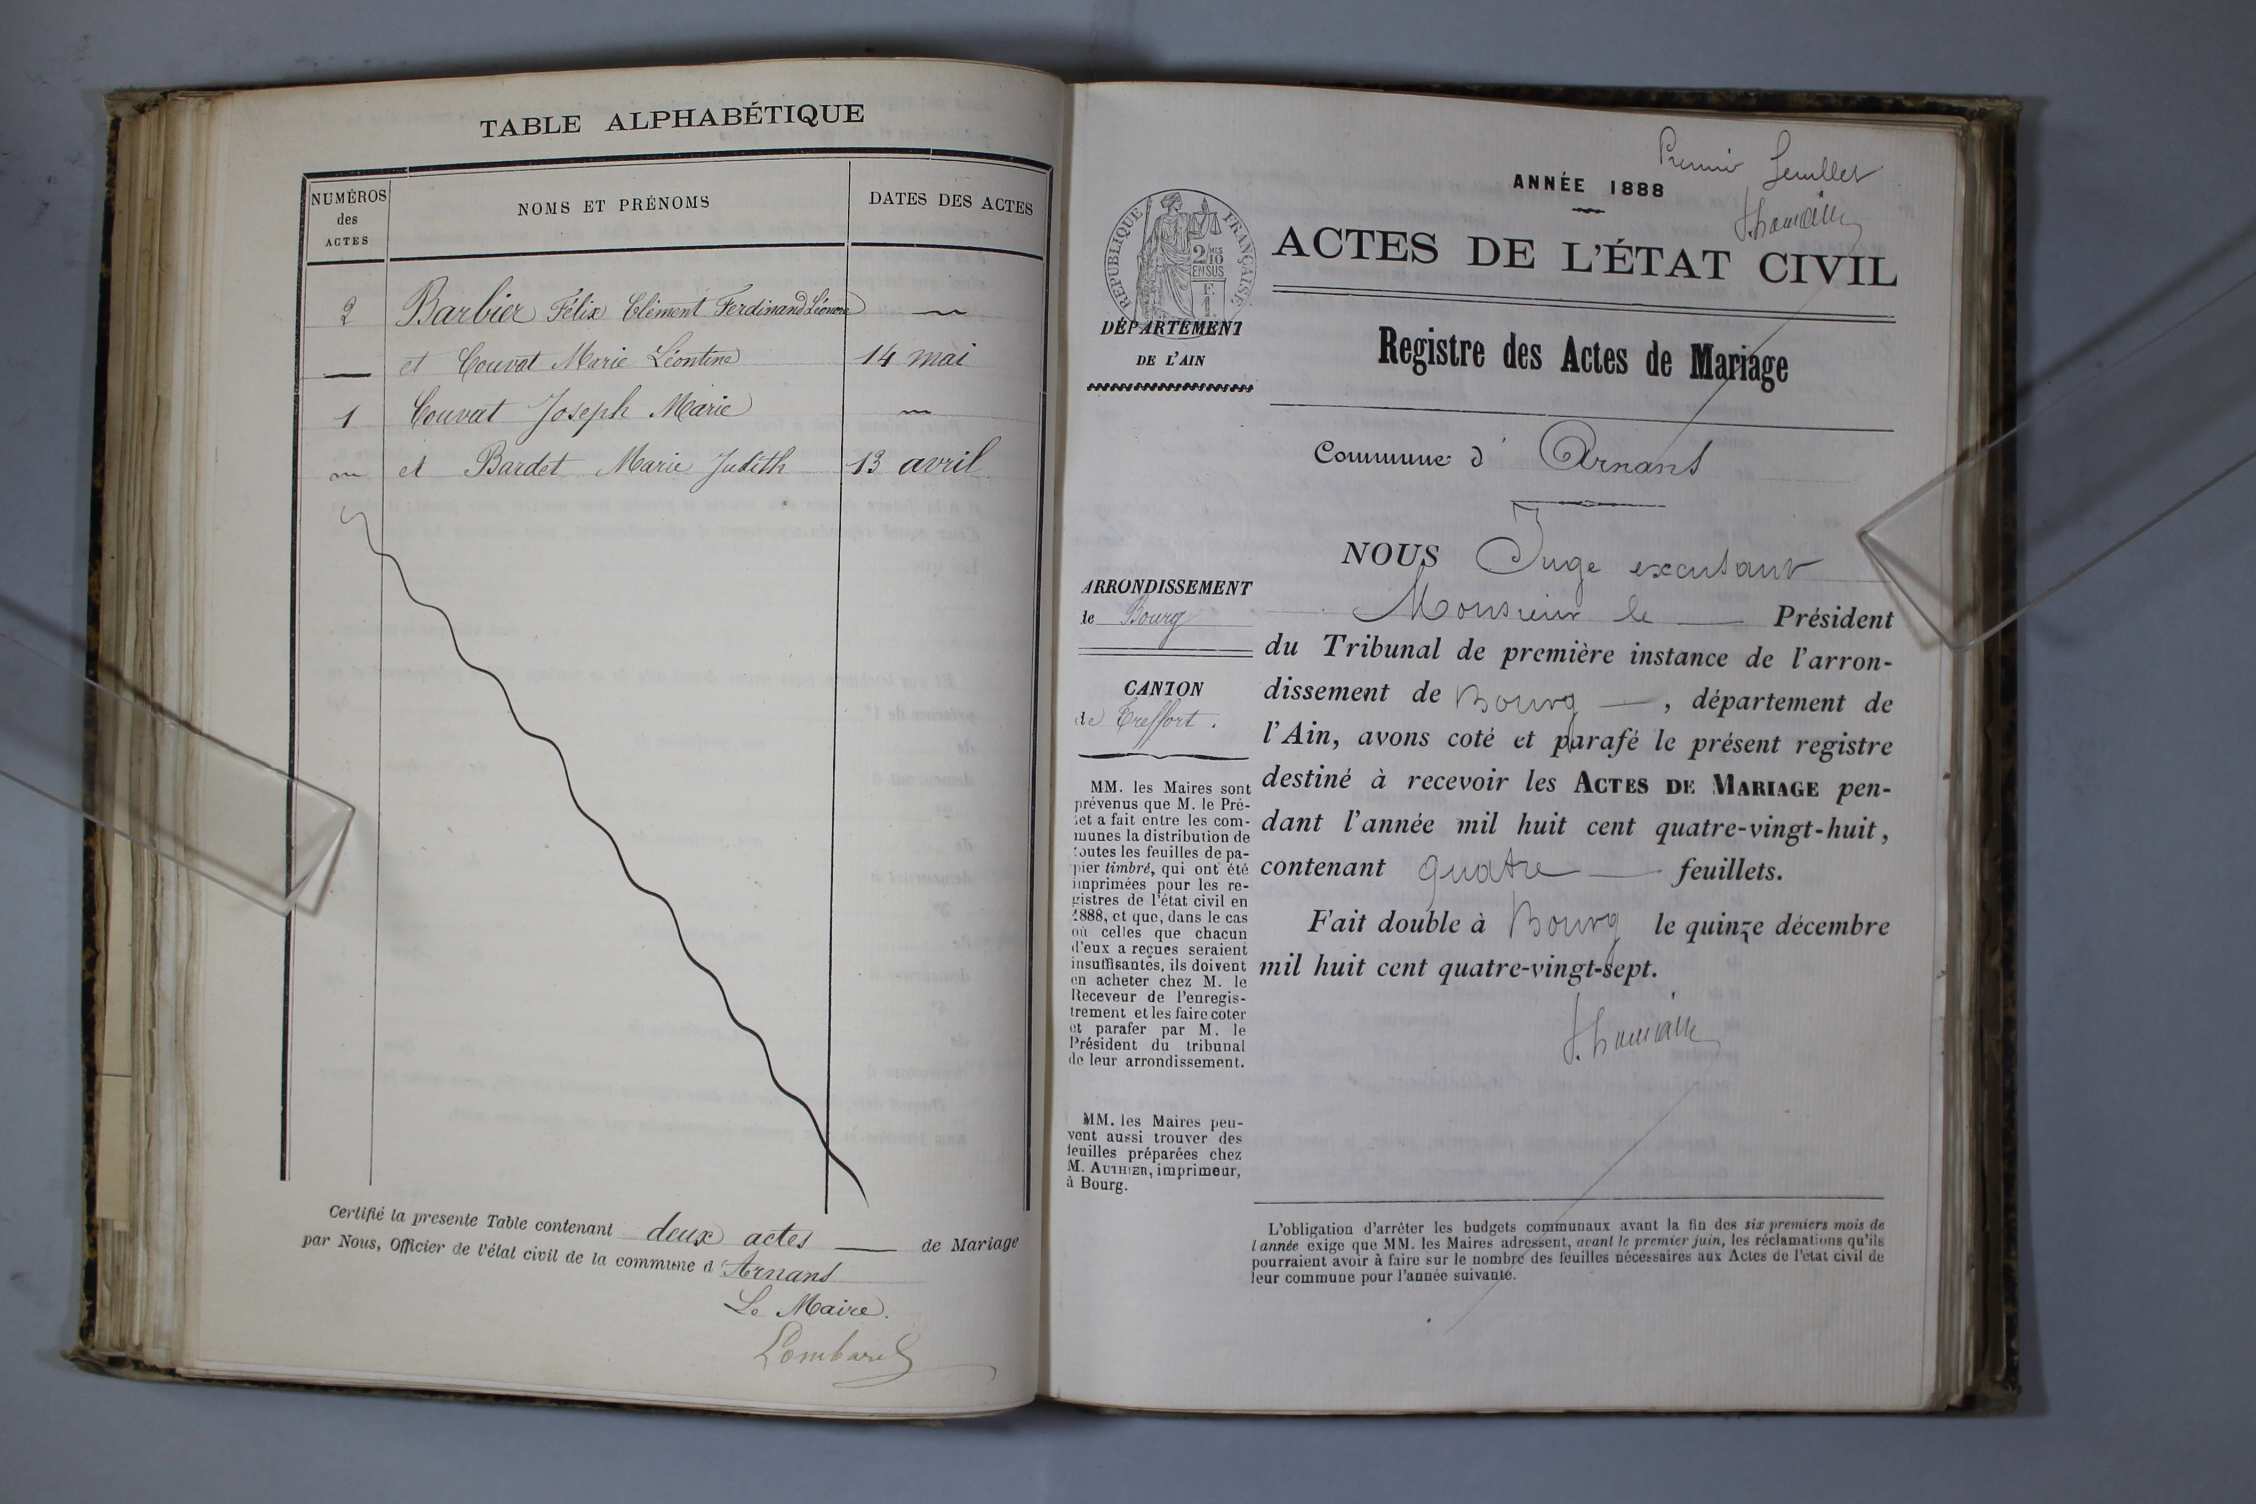 TABLE ALPHABÉTIQUE
NUMÉROS
des
ACTES
NOMS ET PRÉNOMS
DATES DES ACTES
2 Barbier Félix Clément Ferdinand Léonore
et Couvat Marie Léontine 14 mai
1 Couvat Joseph Marie
et Bardet Marie Judith 13 avril
Certifié la presente Table contenant deux actes de Mariage
par Nous, Officier de l'état civil de la commune d'Arnans
Le Maire.
Lombard
Premier feuillet
ANNÉE 1888
RÉPUBLIQUE FRANÇAISE
2/10 MES
EN SUS
F.
1.
ACTES DE L'ÉTAT CIVIL
DÉPARTEMENT
DE L'AIN
Registre des Actes de Mariage
Commune d'Arnans
ARRONDISSEMENT
de Bourg
CANTON
de Treffort.
MM. les Maires sont
prévenus que M. le Pré-
fet a fait entre les com-
munes la distribution de
toutes les feuilles de pa-
pier timbré, qui ont été
imprimées pour les re-
gistres de l'état civil en
1888, et que, dans le cas
où celles que chacun
d'eux a reçues seraient
insuffisantes, ils doivent
en acheter chez M. le
Receveur de l'enregis-
trement et les faire coter
et parafer par M. le
Président du tribunal
de leur arrondissement.
MM. les Maires peu-
vent aussi trouver des
feuilles préparées chez
M. AUTHIER, imprimeur,
à Bourg.
NOUS Juge excusant
Monsieur le Président
du Tribunal de première instance de l'arron-
dissement de Bourg, département de
l'Ain, avons coté et parafé le présent registre
destiné à recevoir les ACTES DE MARIAGE pen-
dant l'année mil huit cent quatre-vingt-huit,
contenant quatre feuillets.
Fait double à Bourg le quinze décembre
mil huit cent quatre-vingt-sept.
L'obligation d'arrêter les budgets communaux avant la fin des six premiers mois de
l'année exige que MM. les Maires adressent, avant le premier juin, les réclamations qu'ils
pourraient avoir à faire sur le nombre des feuilles nécessaires aux Actes de l'état civil de
leur commune pour l'année suivante.